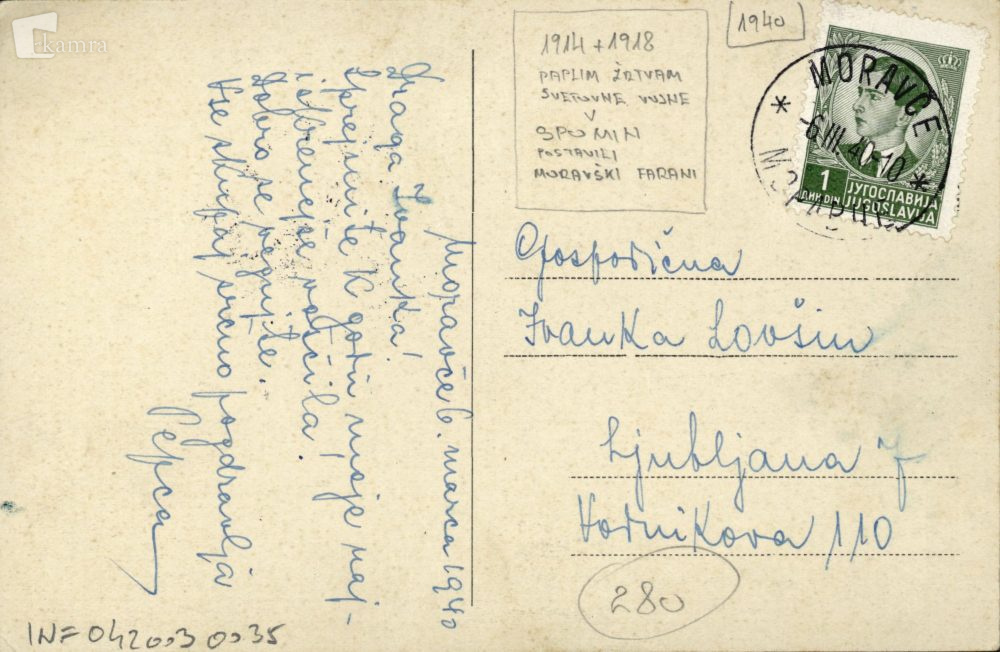 kamra
1914 + 1918
PADLIM ŽRTVAM
SVETOVNE VOJNE
V
SPOMIN
POSTAVILI
MORAVŠKI FARANI
1940
MORAVČE
-6.III.40-10
1
ДИН DIN
ЈУГОСЛАВИЈА
JUGOSLAVIJA
Moravče 6. marca 1940
Draga Ivanka!
Sprejmite k godu moje naj-
iskrenejše voščila!
Dobro se vegnite.
Vse skupaj srčno pozdravlja
Pepca
Gospodična
Ivanka Lovšin
Ljubljana 7
Vodnikova 110
280
INF 042003 0035